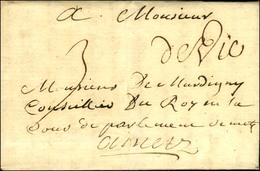 A Monsieur
de Vic
3
Monsieur De Mardigny
Conseiller Du Roy en la
Cour de parlement de metz
Ametz